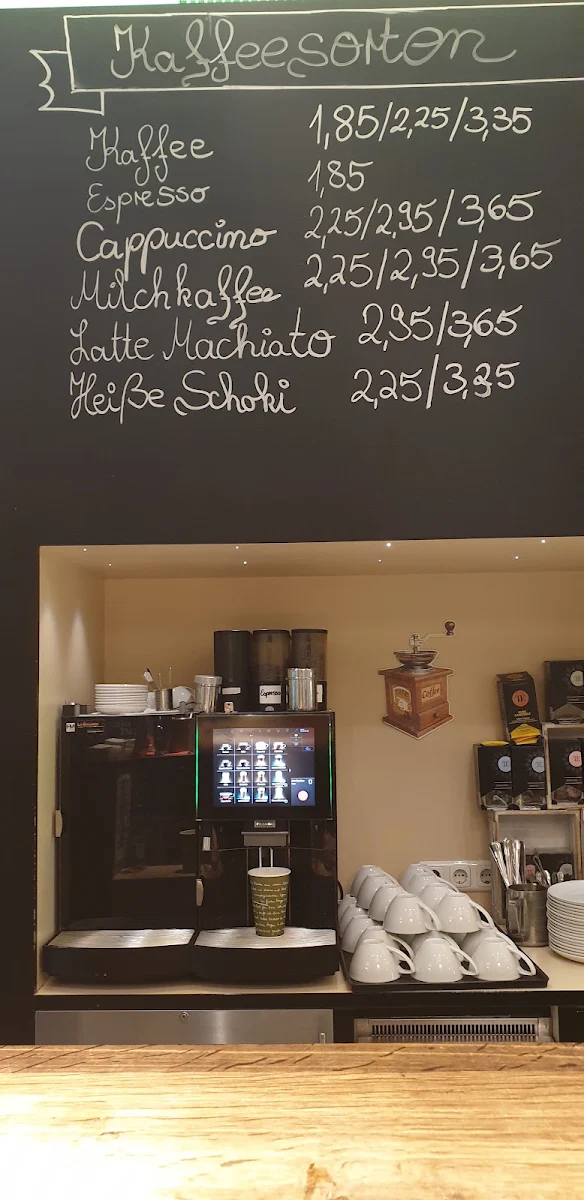 Kaffeesorten
Kaffee 1,85/2,25/3,35
Espresso 1,85
Cappuccino 2,25/2,95/3,65
Milchkaffee 2,25/2,95/3,65
Latte Machiato 2,95/3,65
Heiße Schoki 2,25/3,35
Espresso
Coffee